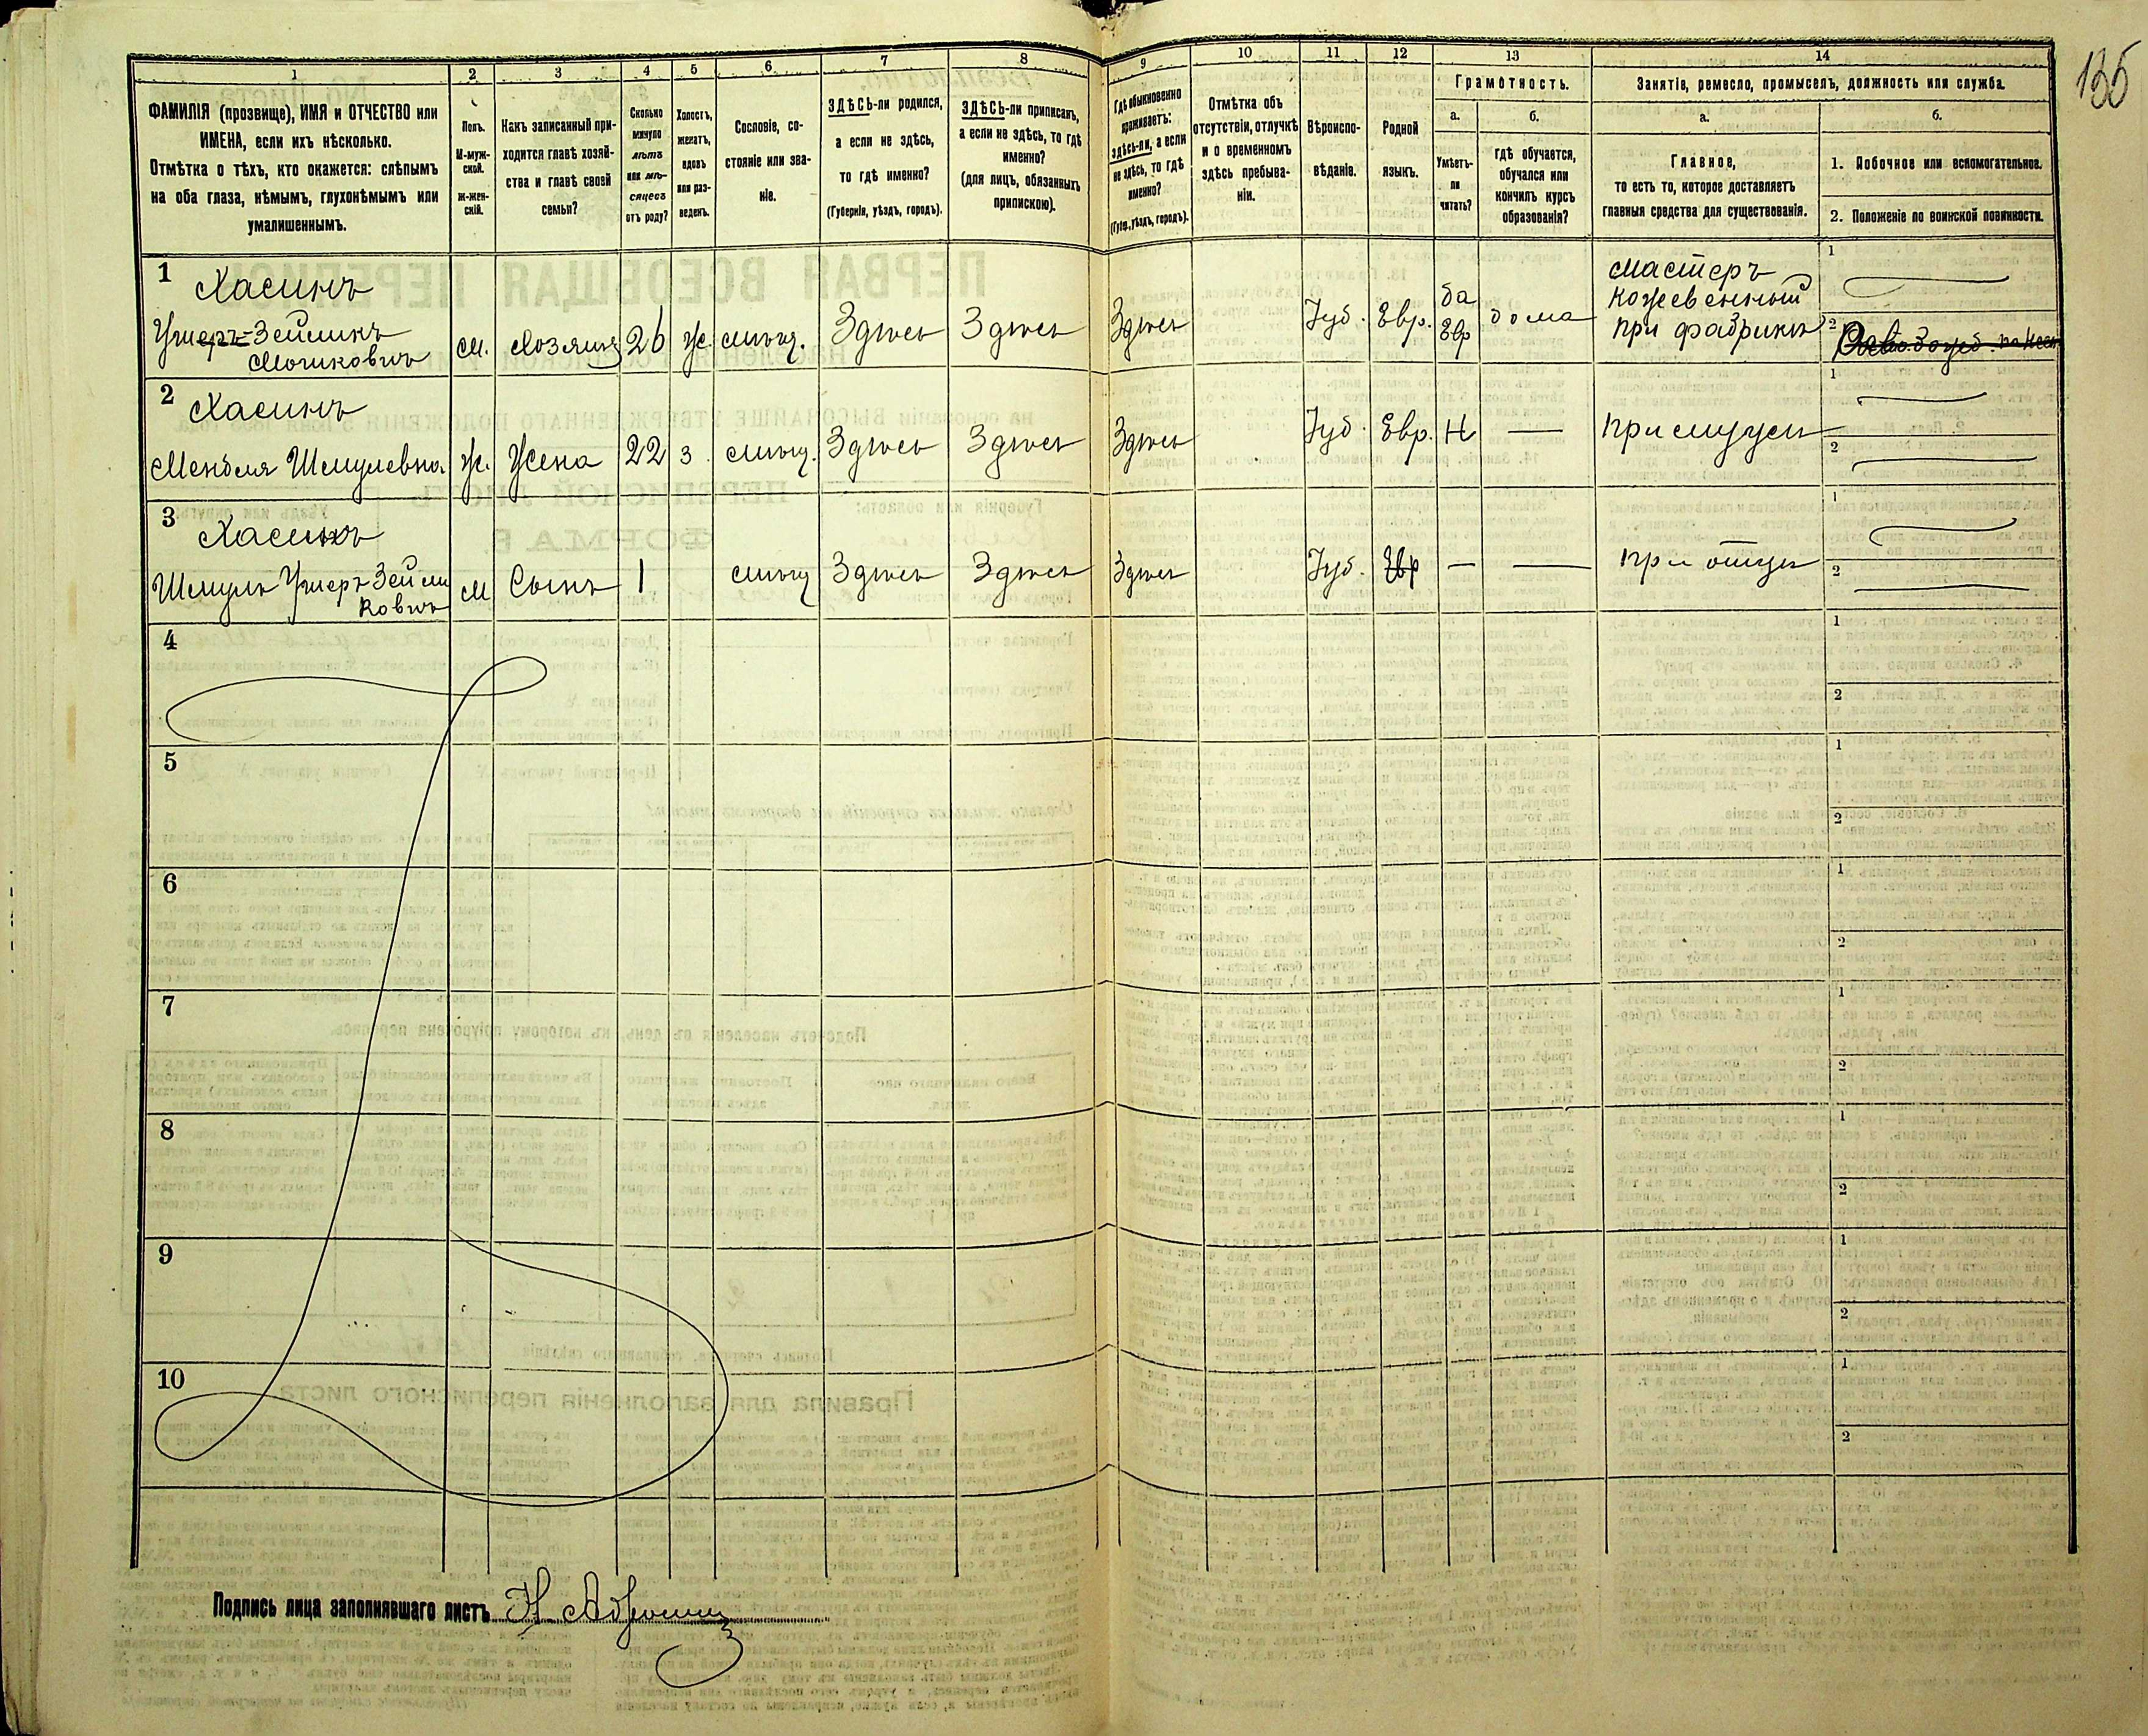 135
1 2 3 4 5 6 7 8 9 10 11 12 13 14
ФАМИЛІЯ (прозвище), ИМЯ и ОТЧЕСТВО или
ИМЕНА, если ихъ нѣсколько.
Отмѣтка о тѣхъ, кто окажется: слѣпымъ
на оба глаза, нѣмымъ, глухонѣмымъ или
умалишеннымъ.
Полъ.
М-муж-
ской.
Ж-жен-
скій.
Какъ записанный при-
ходится главѣ хозяй-
ства и главѣ своей
семьи?
Сколько
минуло
лѣтъ
или мѣ-
сяцевъ
отъ роду?
Холостъ,
женатъ,
вдовъ
или раз-
веденъ.
Сословіе, со-
стояніе или зва-
ніе.
ЗДѢСЬ-ли родился,
а если не здѣсь,
то гдѣ именно?
(Губернія, уѣздъ, городъ).
ЗДѢСЬ-ли приписанъ,
а если не здѣсь, то гдѣ
именно?
(для лицъ, обязанныхъ
припискою).
Гдѣ обыкновенно
проживаетъ:
здѣсь-ли, а если
не здѣсь, то гдѣ
именно?
(Губ., уѣздъ, городъ).
Отмѣтка объ
отсутствіи, отлучкѣ
и о временномъ
здѣсь пребыва-
ніи.
Вѣроиспо-
вѣданіе.
Родной
языкъ.
Грамотность.
а.
Умѣетъ-
ли
читать?
б.
гдѣ обучается,
обучался или
кончилъ курсъ
образованія?
Занятіе, ремесло, промыселъ, должность или служба.
а.
Главное,
то есть то, которое доставляетъ
главныя средства для существованія.
б.
1. Побочное или вспомогательное.
2. Положеніе по воинской повинности.
1 Хасинъ
Ушеръ=Зеймикъ
Мошковичъ
м. Хозяинъ 26 ж. мѣщ. Здѣсь Здѣсь Здѣсь Іуд. Евр. да
Евр дома
Мастеръ
кожевенный
при фабрикѣ
1
2
2 Хасинъ
Менделя Шмулевна ж. Жена 22 з. мѣщ. Здѣсь Здѣсь Здѣсь Іуд. Евр. Н — При мужѣ
1
2
3 Хасинъ
Шмуль Ушеръ Зейми
ковичъ
м Сынъ 1 мѣщ Здѣсь Здѣсь Здѣсь Іуд. Евр — — При отцѣ
1
2
4 1
2
5 1
2
6 1
2
7 1
2
8 1
2
9 1
2
10 1
2
Подпись лица заполнявшаго листъ